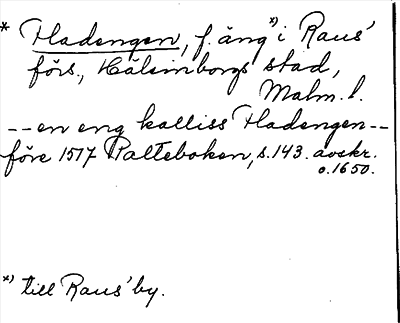 * Hadengen, f. äng *) i Raus'
förs., Hälsinborgs stad,
Malm. l.
-- en eng kalliss Hadengen --
före 1517 Palteboken, s. 143. avskr.
o. 1650.
*) till Raus' by.